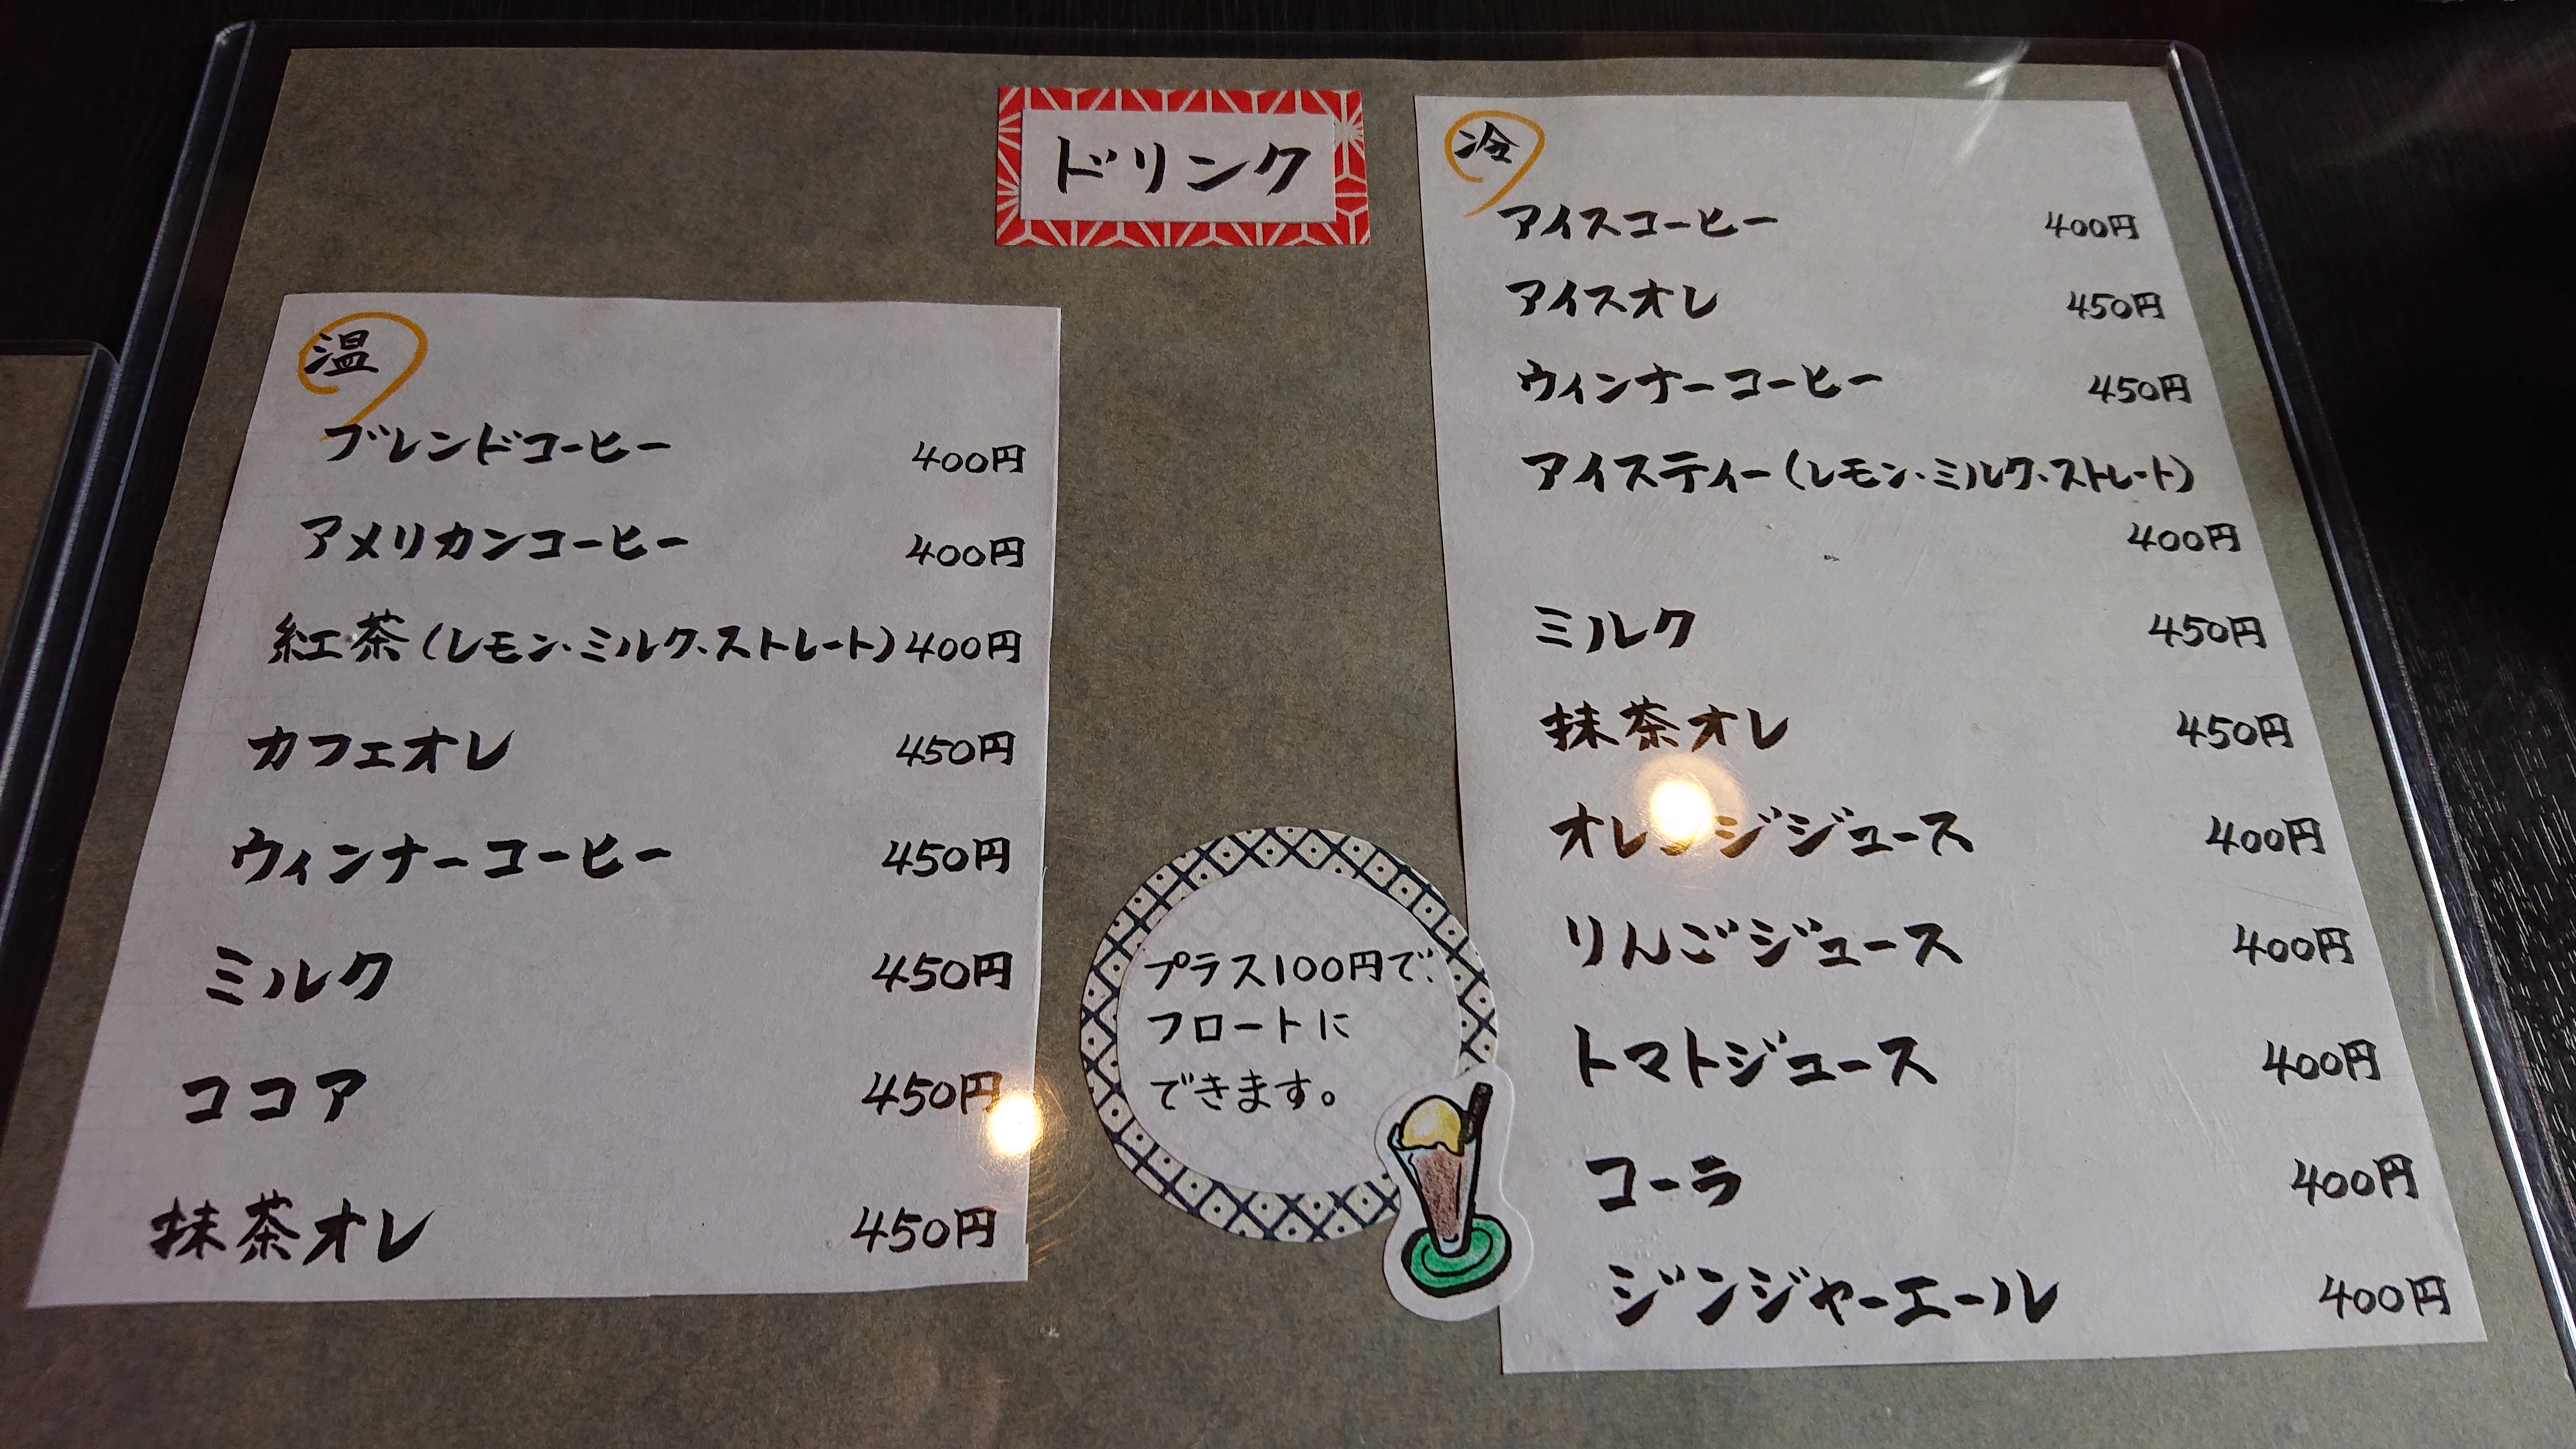 ドリンク
温
ブレンドコーヒー 400円
アメリカンコーヒー 400円
紅茶(レモン・ミルク・ストレート) 400円
カフェオレ 450円
ウィンナーコーヒー 450円
ミルク 450円
ココア 450円
抹茶オレ 450円
プラス100円で、
フロートに
できます。
冷
アイスコーヒー 400円
アイスオレ 450円
ウィンナーコーヒー 450円
アイスティー(レモン・ミルク・ストレート)
400円
ミルク 450円
抹茶オレ 450円
オレンジジュース 400円
りんごジュース 400円
トマトジュース 400円
コーラ 400円
ジンジャーエール 400円